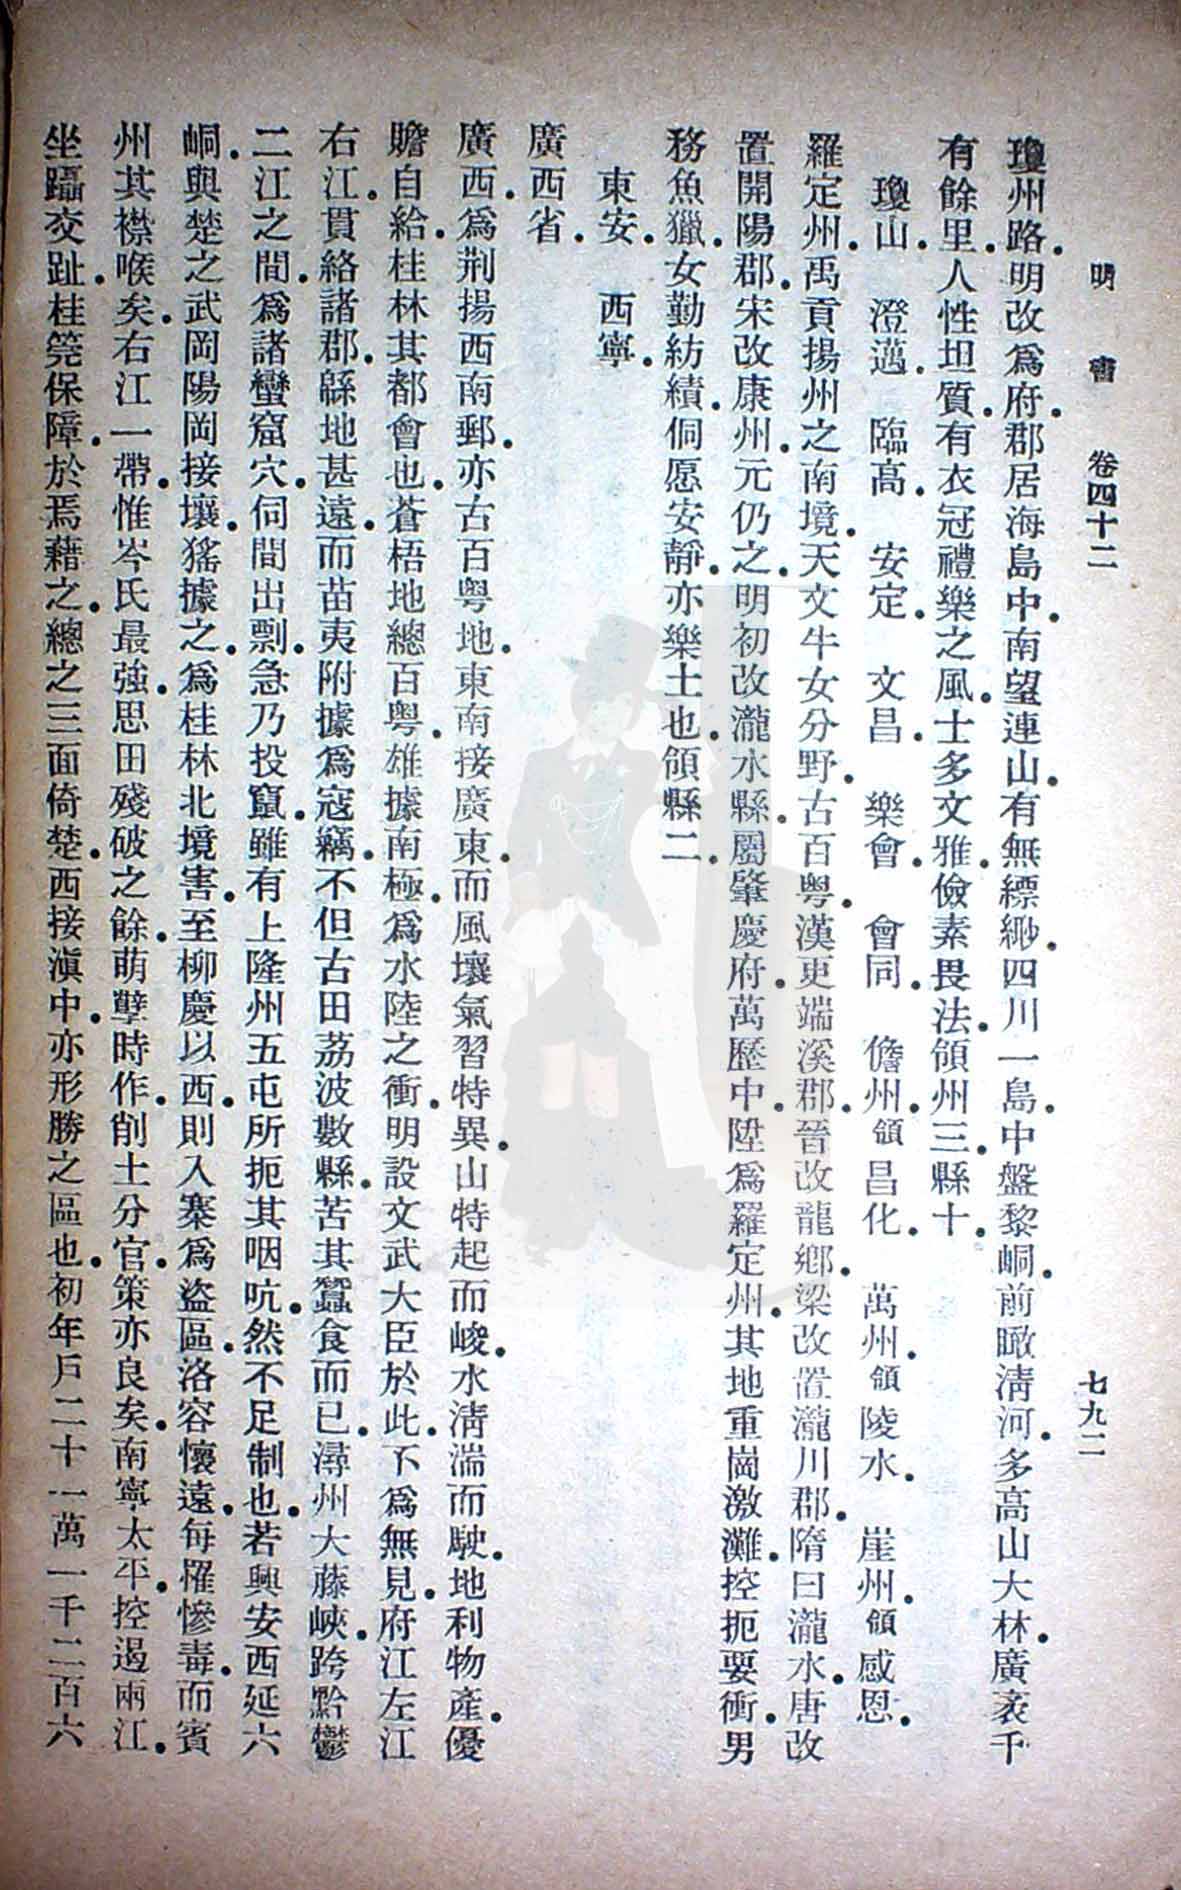 明書 卷四十二 七九二
瓊州路.明改爲府.郡居海島中.南望連山.有無縹緲.四川一島.中盤黎峒.前瞰淸河.多高山大林.廣袤千
有餘里.人性坦質.有衣冠禮樂之風.士多文雅.儉素畏法.領州三.縣十.
瓊山.澄邁.臨高.安定.文昌.樂會.會同.儋州.領昌化.萬州.領陵水.崖州.領感恩.
羅定州.禹貢揚州之南境.天文牛女分野.古百粤.漢更端溪郡.晉改龍鄕.梁改置瀧川郡.隋曰瀧水.唐改
置開陽郡.宋改康州.元仍之.明初改瀧水縣.屬肇慶府.萬歷中.陞爲羅定州.其地重崗激灘.控扼要衝.男
務魚獵.女勤紡績.侗愿安靜.亦樂土也.領縣二.
東安.西寧.
廣西省.
廣西.爲荆揚西南郵.亦古百粤地.東南接廣東.而風壤氣習特異.山特起而峻.水淸湍而駛.地利物產.優
贍自給.桂林其都會也.蒼梧地總百粤.雄據南極.爲水陸之衝.明設文武大臣於此.不爲無見.府江左江
右江.貫絡諸郡.緜地甚遠.而苗夷附據爲寇竊.不但古田荔波數縣.苦其蠶食而已.潯州大藤峽.跨黔鬱
二江之間.爲諸蠻窟穴.伺間出剽.急乃投竄.雖有上隆州五屯所扼其咽吭.然不足制也.若興安西延六
峒.與楚之武岡陽岡接壤.猺據之.爲桂林北境害.至柳慶以西.則入寨爲盜區.洛容懷遠.每罹慘毒.而賓
州其襟喉矣.右江一帶.惟岑氏最強.思田殘破之餘.萌孽時作.削土分官.策亦良矣.南寧太平.控遏兩江.
坐躡交趾.桂筦保障.於焉藉之.總之三面倚楚.西接滇中.亦形勝之區也.初年戶二十一萬一千二百六